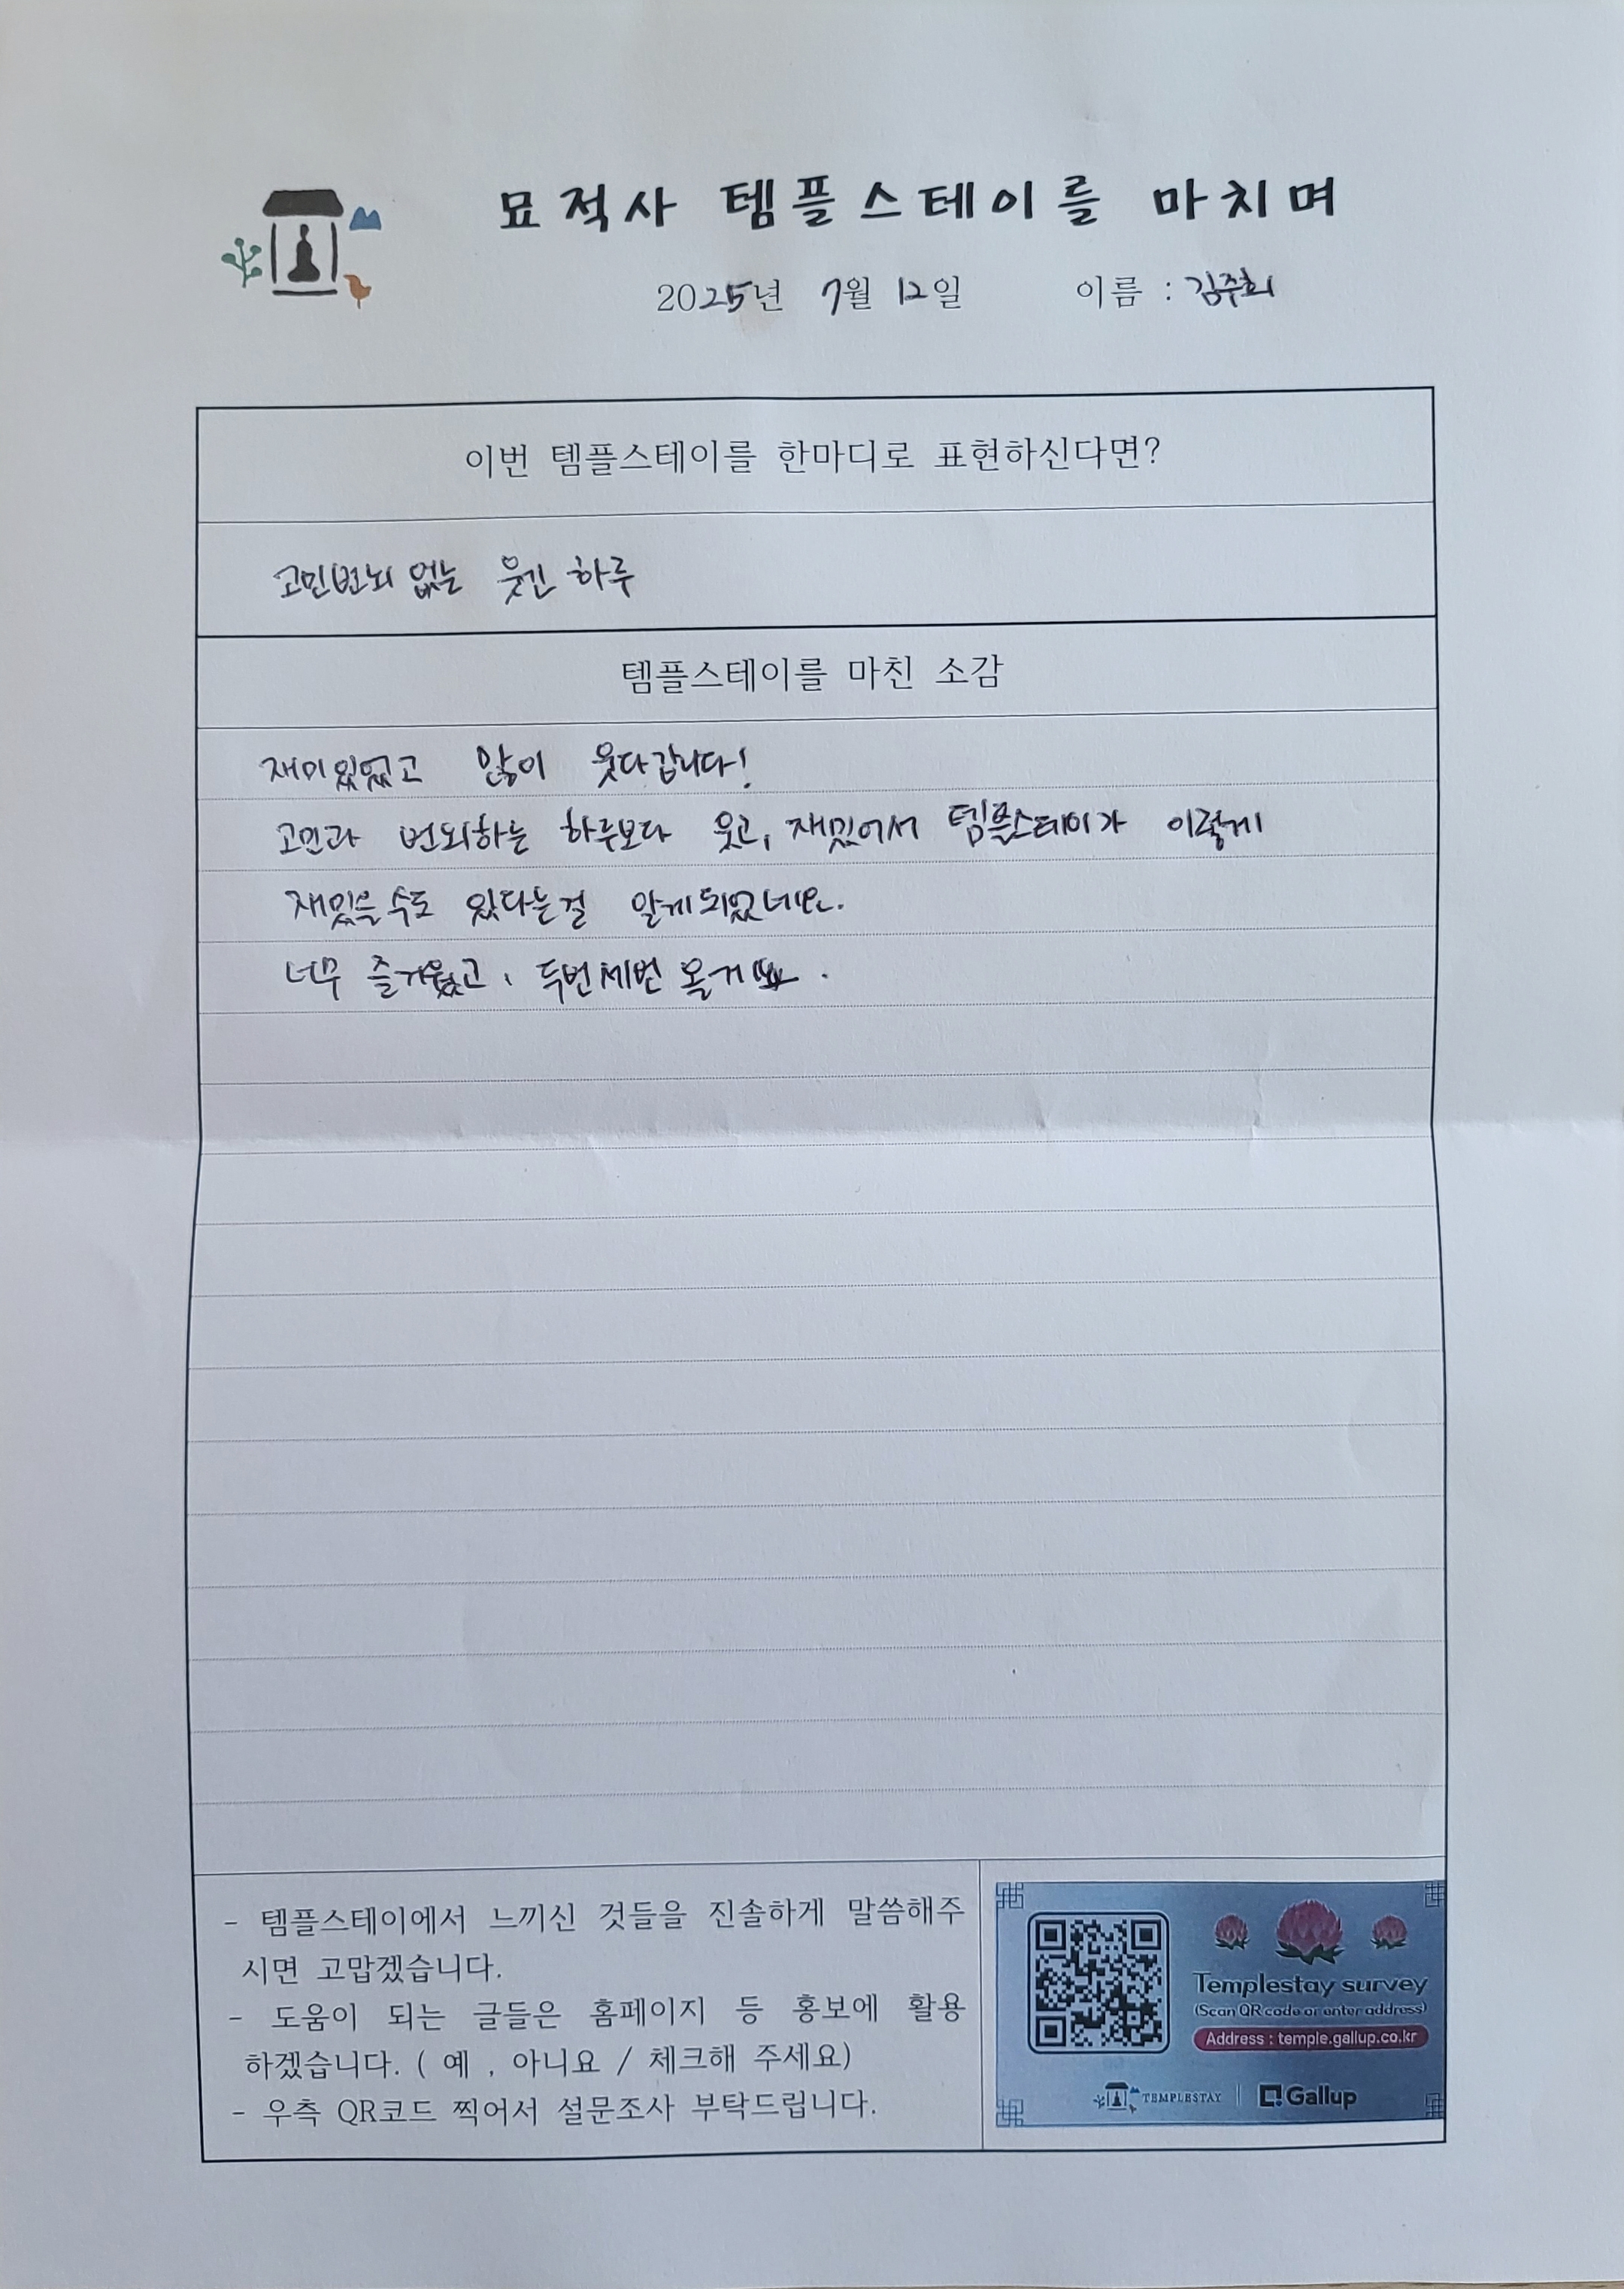 묘적사 템플스테이를 마치며
2025년 7월 12일 이름 : 김주희
이번 템플스테이를 한마디로 표현하신다면?
고민번뇌 없는 웃긴 하루
템플스테이를 마친 소감
재미있었고 많이 웃다갑니다!
고민과 번뇌하는 하루보다 웃고, 재밌어서 템플스테이가 이렇게
재밌을수도 있다는걸 알게되었네요.
너무 즐거웠고, 두번세번 올게요.
- 템플스테이에서 느끼신 것들을 진솔하게 말씀해주
시면 고맙겠습니다.
- 도움이 되는 글들은 홈페이지 등 홍보에 활용
하겠습니다. ( 예 , 아니요 / 체크해 주세요)
- 우측 QR코드 찍어서 설문조사 부탁드립니다.
Templestay survey
(Scan QR code or enter address)
Address : temple.gallup.co.kr
TEMPLESTAY | Gallup